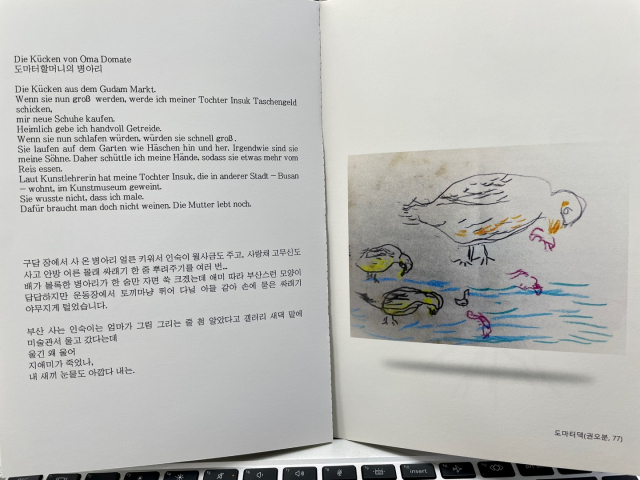 Die Kücken von Oma Domate
도마터할머니의 병아리
Die Kücken aus dem Gudam Markt.
Wenn sie nun groß werden, werde ich meiner Tochter Insuk Taschengeld
schicken,
mir neue Schuhe kaufen.
Heimlich gebe ich handvoll Getreide.
Wenn sie nun schlafen würden, würden sie schnell groß.
Sie laufen auf dem Garten wie Häschen hin und her. Irgendwie sind sie
meine Söhne. Daher schüttle ich meine Hände, sodass sie etwas mehr vom
Reis essen.
Laut Kunstlehrerin hat meine Tochter Insuk, die in anderer Stadt – Busan
– wohnt, im Kunstmuseum geweint.
Sie wusste nicht, dass ich male.
Dafür braucht man doch nicht weinen. Die Mutter lebt noch.
구담 장에서 사 온 병아리 얼른 키워서 인숙이 월사금도 주고, 사랑채 고무신도
사고 안방 어른 몰래 싸래기 한 줌 뿌려주기를 여러 번...
배가 볼록한 병아리가 한 숨만 자면 쑥 크겠는데 애미 따라 부산스런 모양이
답답하지만 운동장에서 토끼마냥 뛰어 다닐 아들 같아 손에 묻은 싸래기
야무지게 털었습니다.
부산 사는 인숙이는 엄마가 그림 그리는 줄 첨 알았다고 갤러리 새댁 말에
미술관서 울고 갔다는데
울긴 왜 울어
지애미가 죽었나,
내 새끼 눈물도 아깝다 내는.
도마터댁(권오분, 77)
insert